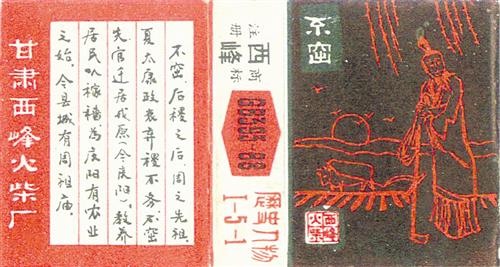 不窋
西峰
火柴
注册
商标
西峰
GB393-83
歷史人物
1-5-1
不窋,后稷之后,周之先祖。
夏太康政衰弃稷不务,不窋
失官迁居戎原(今庆阳)。教养
居民以稼穑为庆阳有农业
之始。今县城有周祖庙。
甘肃西峰火柴厂